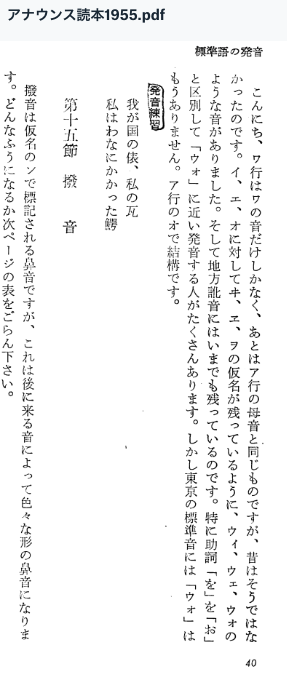 アナウンス読本1955.pdf
標準語の発音
こんにち、ワ行はワの音だけしかなく、あとはア行の母音と同じものですが、昔はそうではな
かったのです。イ、エ、オに対してヰ、ヱ、ヲの仮名が残っているように、ウィ、ウェ、ウォの
ような音がありました。そして地方訛音にはいまでも残っているのです。特に助詞「を」を「お」
と区別して「ウォ」に近い発音する人がたくさんあります。しかし東京の標準音には「ウォ」は
もうありません。ア行のオで結構です。
発音練習
我が国の俵、私の瓦
私はわなにかかった鰐
第十五節 撥音
撥音は仮名のンで標記される鼻音ですが、これは後に来る音によって色々な形の鼻音になりま
す。どんなふうになるか次ページの表をごらん下さい。
40